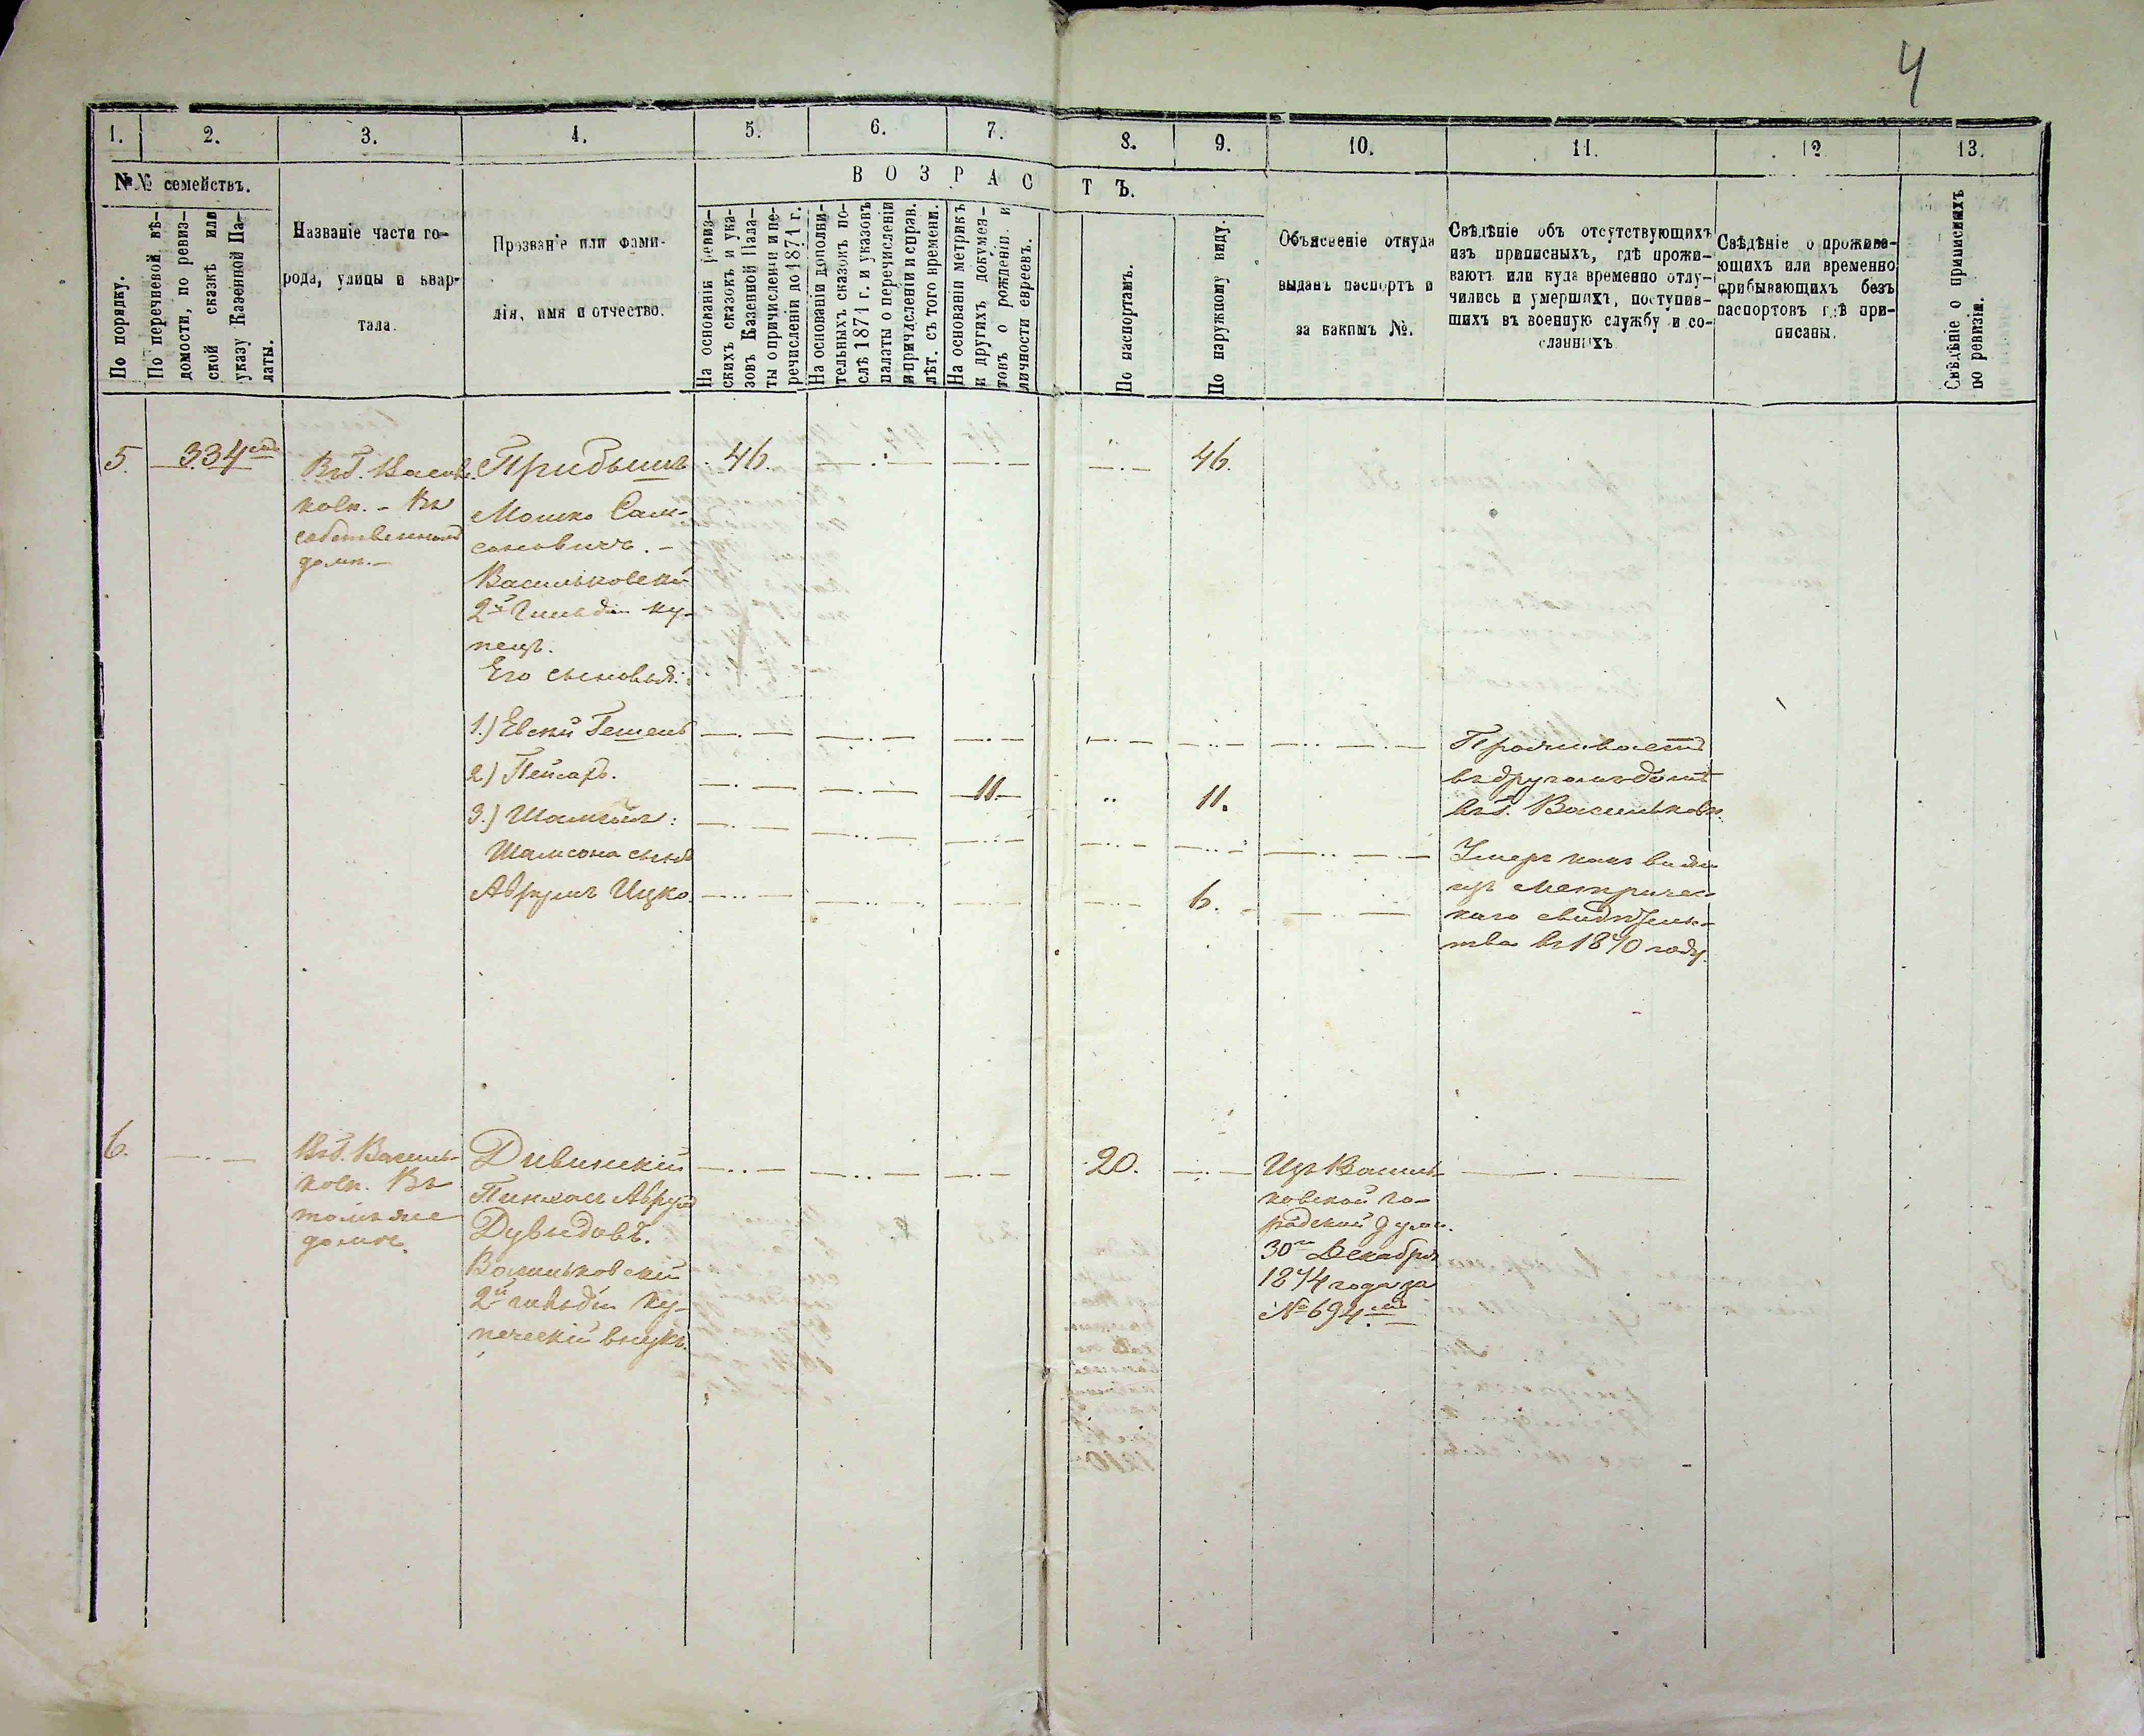 4
1.
2.
3.
4.
5.
6.
7.
8.
9.
10.
11.
12
13.
№№ семействъ.
В О З Р А С Т Ъ.
По порядку.
По перечневой вѣ-
домости, по ревиз-
ской сказкѣ или
указу Казенной Па-
латы.
Названіе части го-
рода, улицы и квар-
тала.
Прозваніе или фами-
лія, имя и отчество.
На основаніи ревиз-
скихъ сказокъ и ука-
зовъ Казенной Пала-
ты о причисленіи и пе-
речисленіи до 1871 г.
На основаніи дополни-
тельныхъ сказокъ по-
слѣ 1871 г. и указовъ
палаты о перечисленіи
и причисленіи и справ.
лѣт. съ того времени.
На основаніи метрикъ
и другихъ докумен-
товъ о рожденіи и
личности евреевъ.
По паспортамъ.
По наружному виду.
Объясненіе откуда
выданъ паспортъ и
за какимъ №.
Свѣдѣніе объ отсутствующихъ
изъ приписныхъ, гдѣ прожи-
ваютъ или куда временно отлу-
чились и умершихъ, поступив-
шихъ въ военную службу и со-
сланныхъ
Свѣдѣніе о прожива-
ющихъ или временно
прибывающихъ безъ
паспортовъ гдѣ при-
писаны.
Свѣдѣніе о приписныхъ
по ревизіи.
5.
334
Въ г. Василь-
ковѣ. - Въ
собственномъ
домѣ. -
Мошко Сам-
соновичъ. -
Васильковскій
2й Гильдіи ку-
пецъ.
Его сыновья:
46.
46.
1.)
2.) Пейсахъ.
11
11.
3.)
Шамсона сынъ
Аврумъ Ицко.
6.
Проживаетъ
въ другомъ домѣ
въ г. Васильковѣ.
Умеръ какъ видно
изъ Метричес-
каго свидѣтель-
тва въ 1870 году.
6.
Въ г. Василь-
ковѣ. Въ
томъ же
домѣ.
Дивинскій
Пинхасъ Аврумъ
Дувидовъ.
Васильковскій
2й гильдіи Ку-
печескій внукъ.
20.
Изъ Василь-
ковской го-
родской Думы.
30го Декабря
1874 года за
№ 694